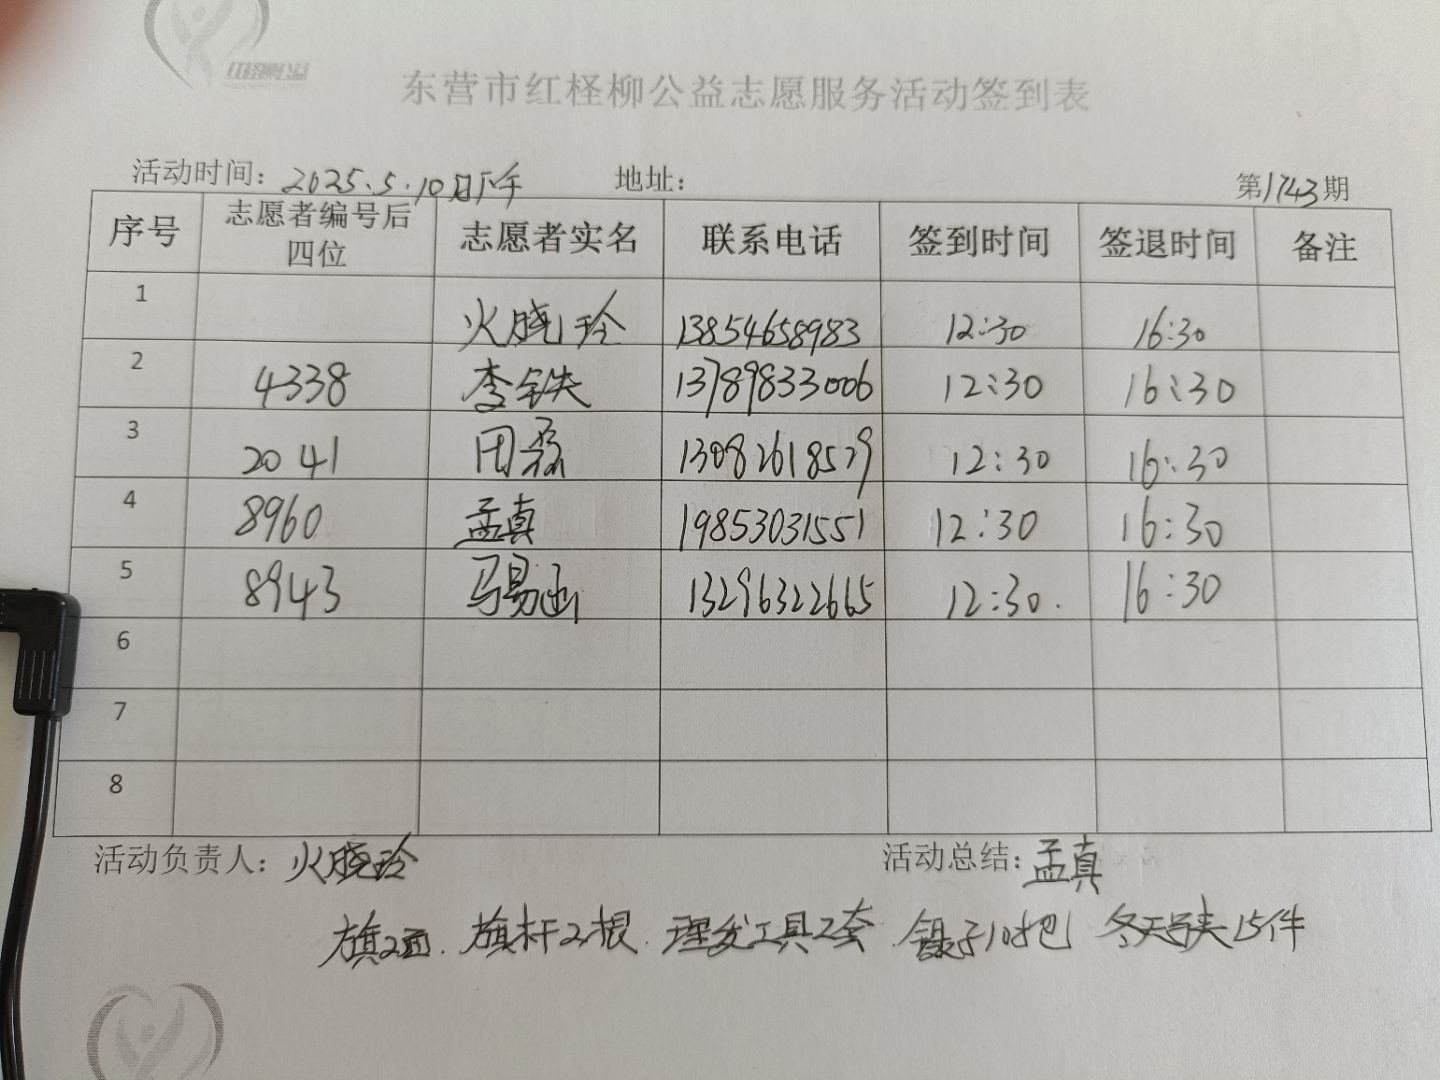 红柽柳公益
东营市红柽柳公益志愿服务活动签到表
活动时间：2025.5.10日下午 地址： 第1743期
序号 志愿者编号后四位 志愿者实名 联系电话 签到时间 签退时间 备注
1 火晓玲 13854658983 12:30 16:30
2 4338 李铁 13789833006 12:30 16:30
3 2041 田磊 13082618529 12:30 16:30
4 8960 孟真 19853031551 12:30 16:30
5 8943 马易函 13296322665 12:30. 16:30
6
7
8
活动负责人：火晓玲 活动总结：孟真
旗2面. 旗杆2根. 理发工具2套 镊子10把 冬天马夹15件